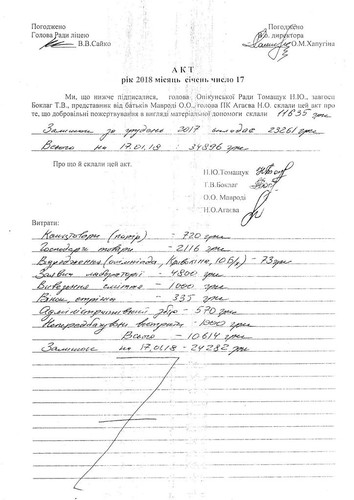 Погоджено
Голова Ради ліцею
В.В.Сайко
Погоджено
директора
О.М.Хапугіна
А К Т
рік 2018 місяць січень число 17
Ми, що нижче підписалися, голова Опікунської Ради Томащук Н.Ю., завгосп
Боклаг Т.В., представник від батьків Мавроді О.О., голова ПК Агаєва Н.О. склали цей акт про
те, що добровільні пожертвування в вигляді матеріальної допомоги склали 11635 грн
Залишки за грудень 2017 складає 23261 грн
Всього на 17.01.18 : 34896 грн
Про що й склали цей акт.
Н.Ю.Томащук
Т.В.Боклаг
О.О. Мавроді
Н.О.Агаєва
Витрати:
Канцтовари (папір) - 720 грн
Господарчі товари - 2116 грн
Відрядження (олімпіада, 10Б) - 73 грн
лабораторії - 4800 грн
Вивезення сміття - 1000 грн
335 грн
Адміністративний збір - 570 грн
Непередбачувані витрати - 1000 грн
Всього - 10614 грн
Залишок на 17.01.18 - 24282 грн